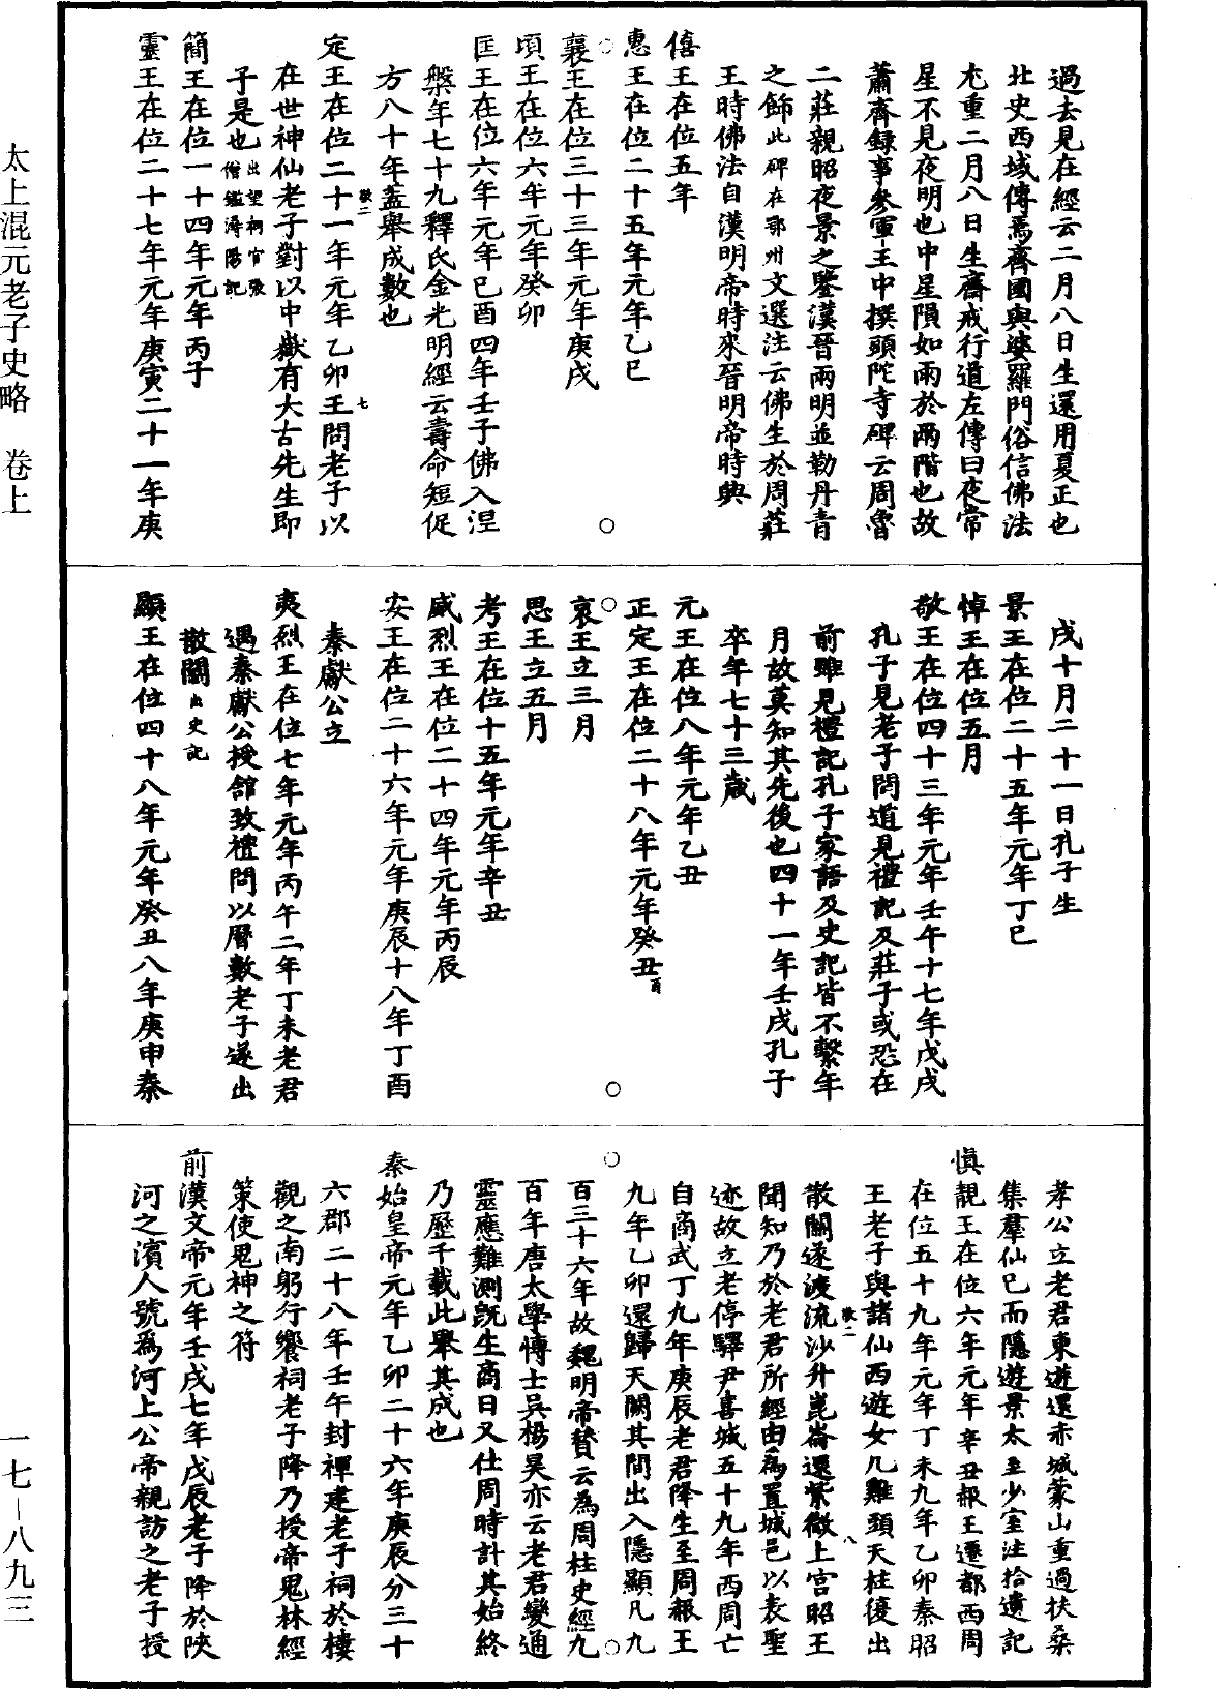 過去見在經云二月八日生還用夏正也
北史西域傳焉耆國與婆羅門俗信佛法
尤重二月八日生齋戒行道左傳曰夜常
星不見夜明也中星隕如雨於兩階也故
蕭齊録事參軍王中撰頭陀寺碑云周魯
二莊親昭夜景之鑒漢晉兩明並勒丹青
之飾此碑在鄂州文選注云佛生於周莊
王時佛法自漢明帝時來晉明帝時興
僖王在位五年
惠王在位二十五年元年乙巳
襄王在位三十三年元年庚戌
頃王在位六年元年癸卯
匡王在位六年元年己酉四年壬子佛入涅
槃年七十九釋氏金光明經云壽命短促
方八十年蓋舉成數也
定王在位二十一年元年乙卯王問老子以
在世神仙老子對以中嶽有大古先生即
子是也出望祠官張僧鑑潯陽記
簡王在位一十四年元年丙子
靈王在位二十七年元年庚寅二十一年庚
戌十月二十一日孔子生
景王在位二十五年元年丁巳
悼王在位五月
敬王在位四十三年元年壬午十七年戊戌
孔子見老子問道見禮記及莊子或恐在
前雖見禮記孔子家語及史記皆不繫年
月故莫知其先後也四十一年壬戌孔子
卒年七十三歲
元王在位八年元年乙丑
正定王在位二十八年元年癸丑酉
哀王立三月
思王立五月
考王在位十五年元年辛丑
威烈王在位二十四年元年丙辰
安王在位二十六年元年庚辰十八年丁酉
秦獻公立
夷烈王在位七年元年丙午二年丁未老君
遇秦獻公授館致禮問以曆數老子遂出
散關出史記
顯王在位四十八年元年癸丑八年庚申秦
孝公立老君東遊還赤城蒙山重過扶桑
集羣仙已而隱遊景太至少室注拾遺記
慎靚王在位六年元年辛丑赧王遷都西周
在位五十九年元年丁未九年乙卯秦昭
王老子與諸仙西遊女几雞頭天柱復出
散關遂渡流沙升崑崙還紫微上宮昭王
聞知乃於老君所經由為置城邑以表聖
迹故立老停驛尹喜城五十九年西周亡
自商武丁九年庚辰老君降生至周赧王
九年乙卯還歸天闕其間出入隱顯凡九
百三十六年故魏明帝贊云為周柱史經九
百年唐太學博士吳楊昊亦云老君變通
靈應難測既生商日又仕周時計其始終
乃歷千載此舉其成也
秦始皇帝元年乙卯二十六年庚辰分三十
六郡二十八年壬午封禪建老子祠於樓
觀之南躬行饗祠老子降乃授帝鬼林經
策使鬼神之符
前漢文帝元年壬戌七年戊辰老子降於陝
河之濱人號為河上公帝親訪之老子授
太上混元老子史略　卷上
一七-八九三